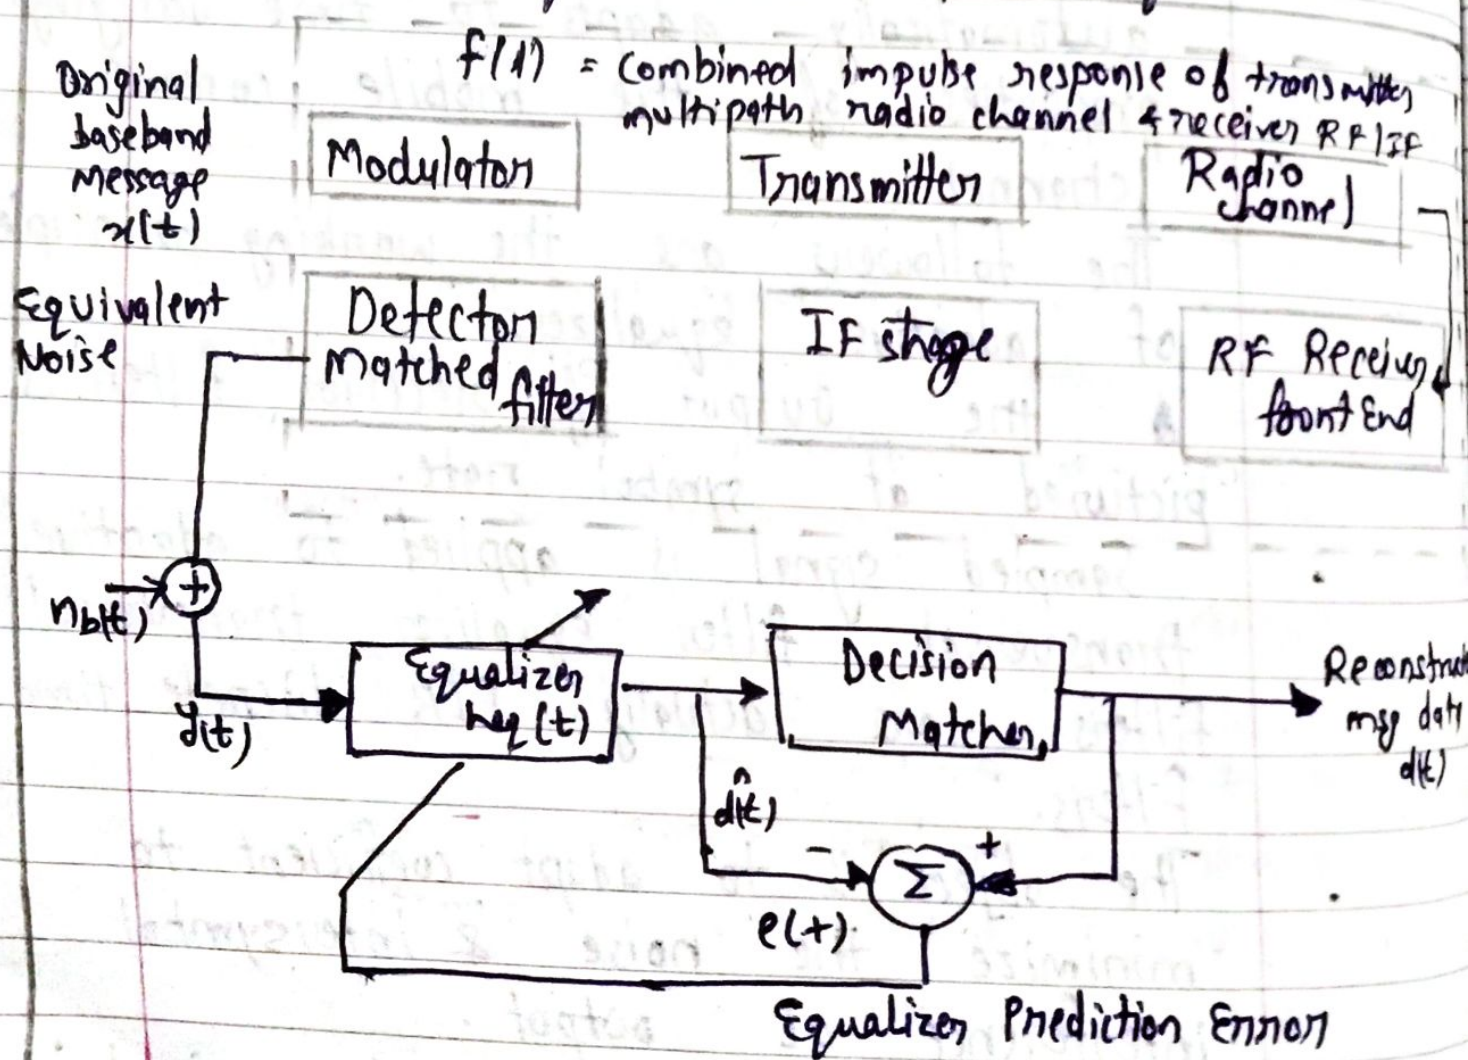 f(t) = combined impulse response of transmitter
multipath radio channel & receiver RF/IF
Original
baseband
message
x(t)
Modulator
Transmitter
Radio
channel
Equivalent
Noise
Detector
Matched
filter
IF stage
RF Receiver
front End
nb(t)
y(t)
Equalizer
heq (t)
Decision
Matcher
Reconstruct
msg data
d(t)
d̂(t)
-
+
Σ
e(t)
Equalizer Prediction Error